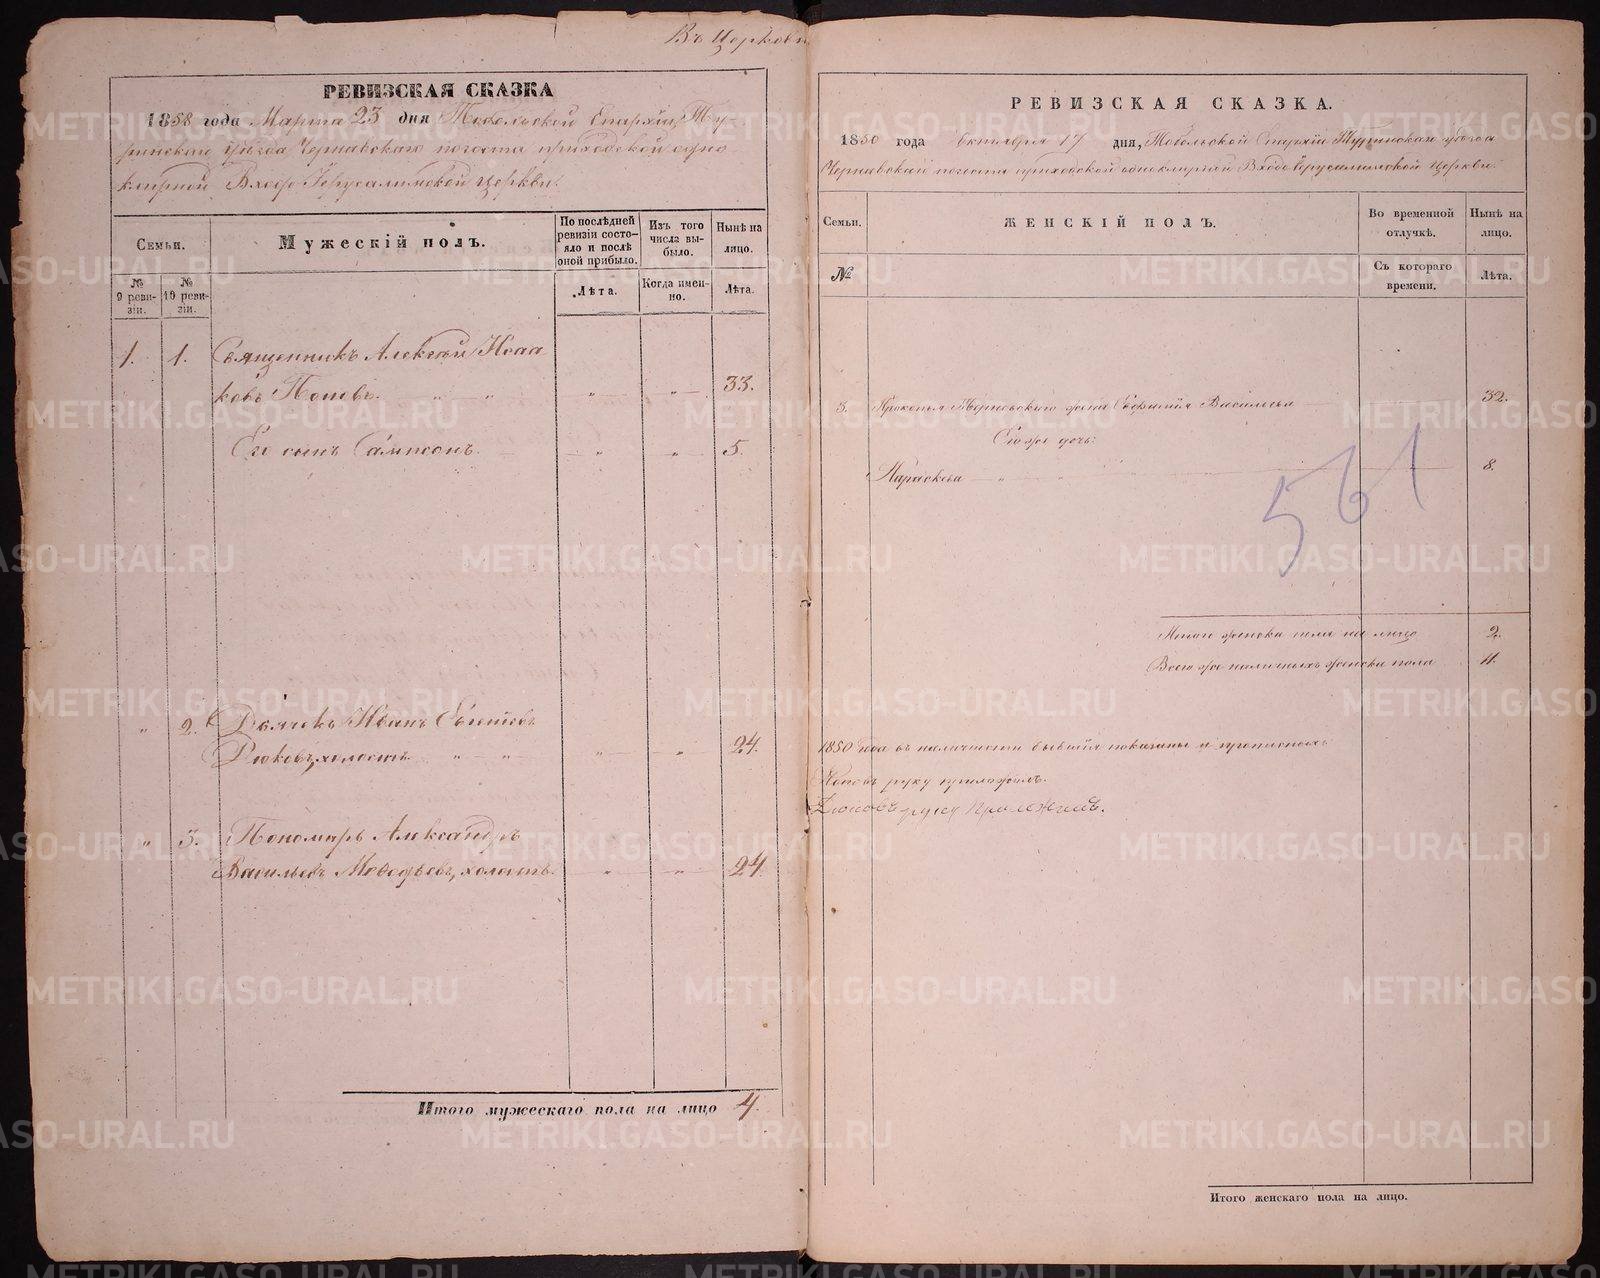 Въ Церкви
РЕВИЗСКАЯ СКАЗКА
1858 года Марта 23 дня Тобольской Епархіи, Ту-
ринскаго уѣзда Чернавскаго погоста приходской одно
клирной Входо Іерусалимской церкви.
Семьи.
Мужескій полъ.
По послѣдней ревизіи состо-
яло и послѣ
оной прибыло.
Изъ того
числа вы-
было.
Нынѣ на
лицо.
№
9 реви-
зіи.
№
10 реви-
зіи.
Лѣта.
Когда имен-
но.
Лѣта.
1. 1. Священникъ Алексѣй Исаа
ковъ Поповъ. " " " " 33.
Его сынъ Сампсонъ. " " 5.
" 2. Дьячекъ Иванъ
холостъ " " " " 24.
" 3. Пономарь Александръ
Васильевъ холостъ. " " 24.
Итого мужескаго пола на лицо 4.
РЕВИЗСКАЯ СКАЗКА.
1850 года Октября 17 дня, Тобольской Епархіи Туринскаго уѣзда
Чернавскаго погоста приходской одноклирной Входо Іерусалимской Церкви.
Семьи.
ЖЕНСКІЙ ПОЛЪ.
Во временной
отлучкѣ.
Нынѣ на
лицо.
№
Съ котораго
времени.
Лѣта.
3. Прокопья жена Евфимія Васильева 32.
Ея же дочь:
Параскева " 8.
561
Итого женска пола на лицо 2.
Всего же наличныхъ женска пола 11.
1850 года въ наличности бывшія показаны и прописныхъ
Поповъ руку приложилъ.
руку приложилъ.
Итого женскаго пола на лицо.
METRIKI.GASO-URAL.RU